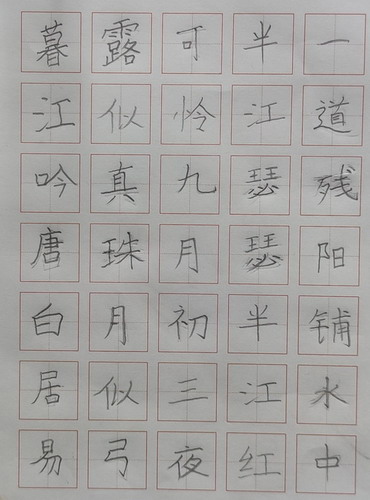 一道残阳铺水中
半江瑟瑟半江红
可怜九月初三夜
露似真珠月似弓
暮江吟唐白居易